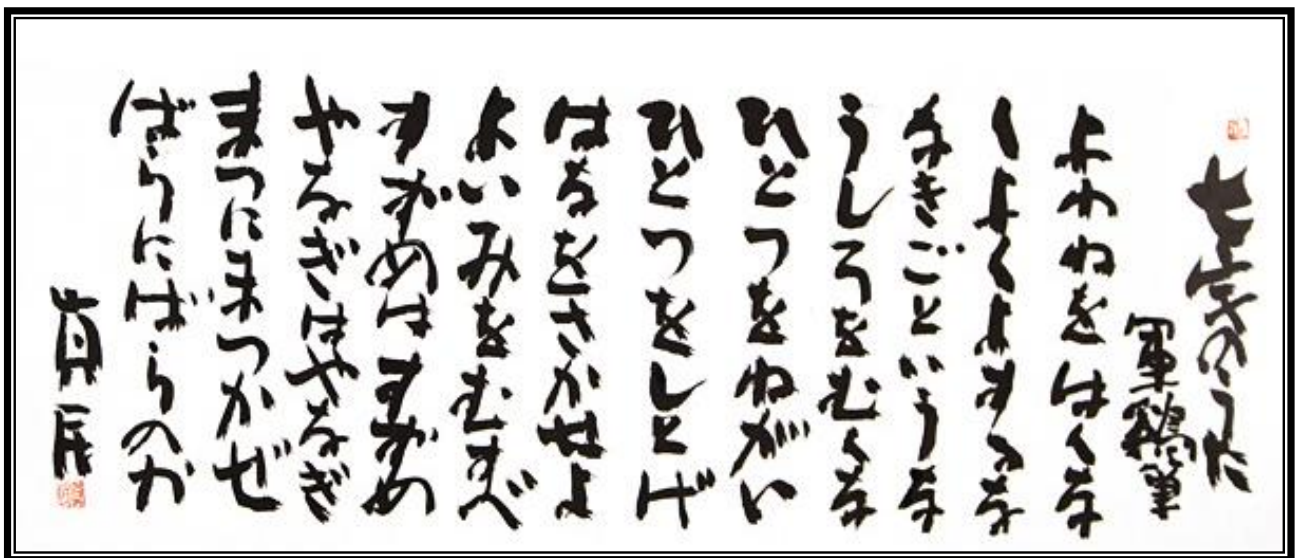 七字のうた
軍鶏筆
よわねをはくな
くよくよするな
なきごというな
うしろをむくな
ひとつをねがい
ひとつをしとげ
はなをさかせよ
よいみをむすべ
すずめはすずめ
やなぎはやなぎ
まつにまつかぜ
ばらにばらのか
真民